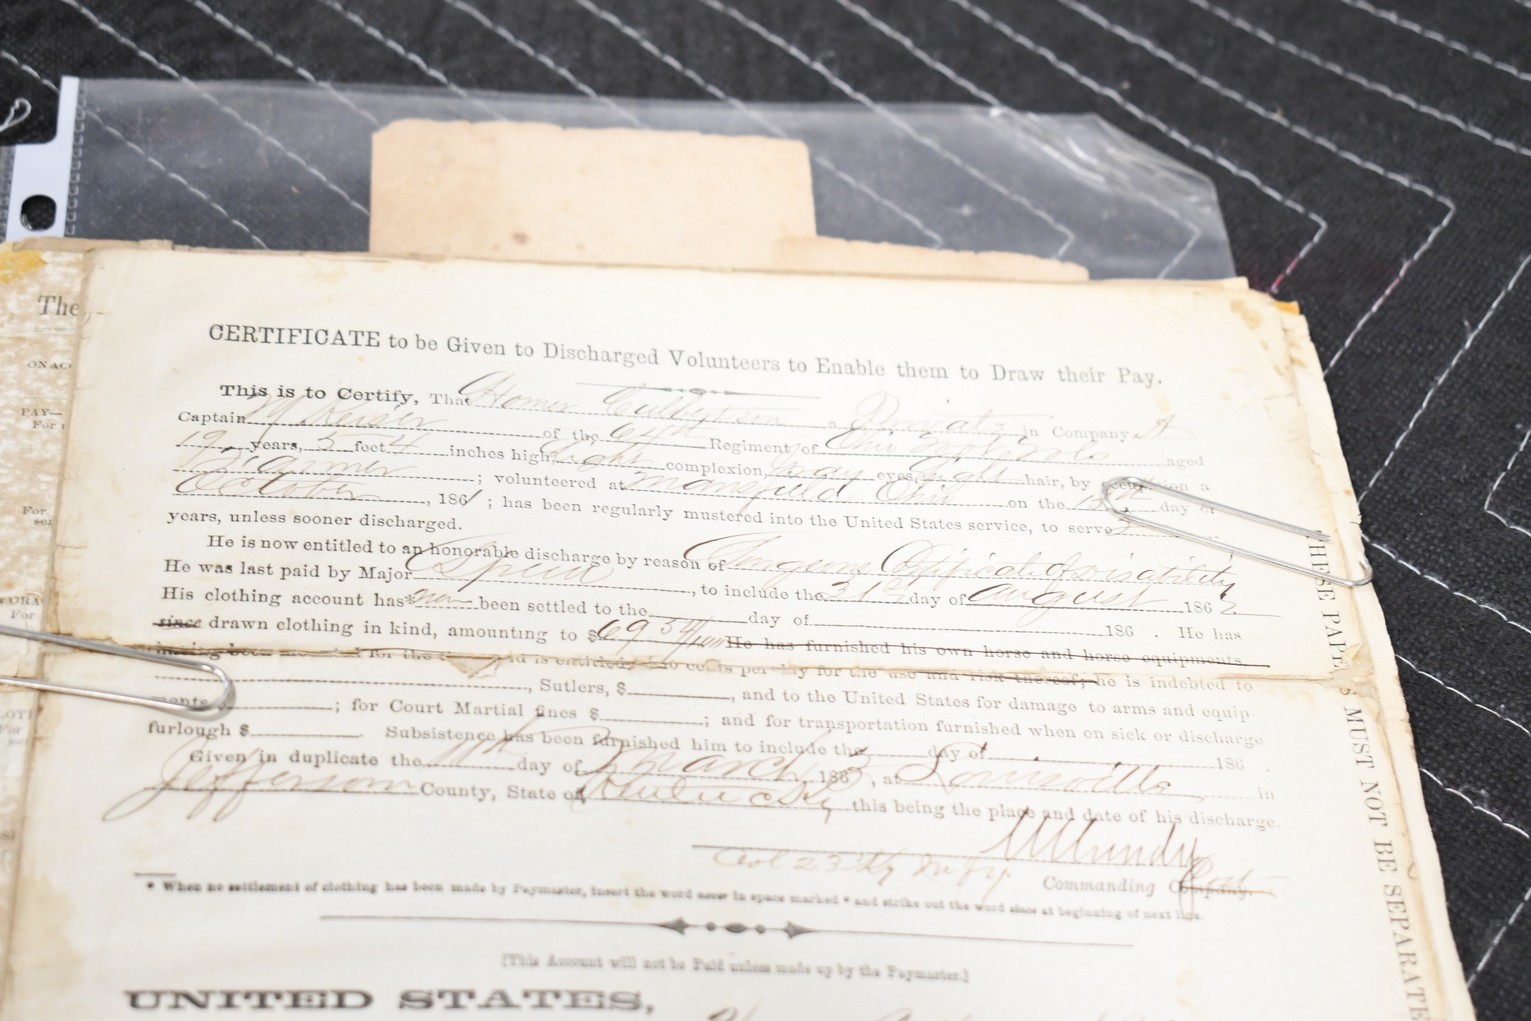 CERTIFICATE to be Given to Discharged Volunteers to Enable them to Draw their Pay.
This is to Certify, That Homer a Private in Company A
Captain of the 64th Regiment of Ohio aged
19 years, 5 feet 4 inches high, Light complexion, Gray eyes, Light hair, by occupation a
Farmer ; volunteered at Mansfield Ohio on the day of
October , 1861 ; has been regularly mustered into the United States service, to serve 3
years, unless sooner discharged.
He is now entitled to an honorable discharge by reason of Surgeons Certificate of Disability
He was last paid by Major , to include the 31st day of August 1862
His clothing account has* never been settled to the day of 186 . He has
since drawn clothing in kind, amounting to $69 He has furnished his own horse and horse equipments
for the is entitled to 40 cents per day for the use and risk thereof; he is indebted to
, Sutlers, $ , and to the United States for damage to arms and equip-
ments ; for Court Martial fines $ ; and for transportation furnished when on sick or discharge
furlough $ . Subsistence has been furnished him to include the day of 186 .
Given in duplicate the 11th day of March, 1863, at Louisville in
Jefferson County, State of Kentucky this being the place and date of his discharge.
Mundy
Col 23 Ky Infy Commanding Company. Post
* When no settlement of clothing has been made by Paymaster, insert the word never in space marked * and strike out the word since at beginning of next line.
[This Account will not be Paid unless made up by the Paymaster.]
UNITED STATES,
THESE PAPERS MUST NOT BE SEPARATE
The
ON AC
PAY—
For
For
For